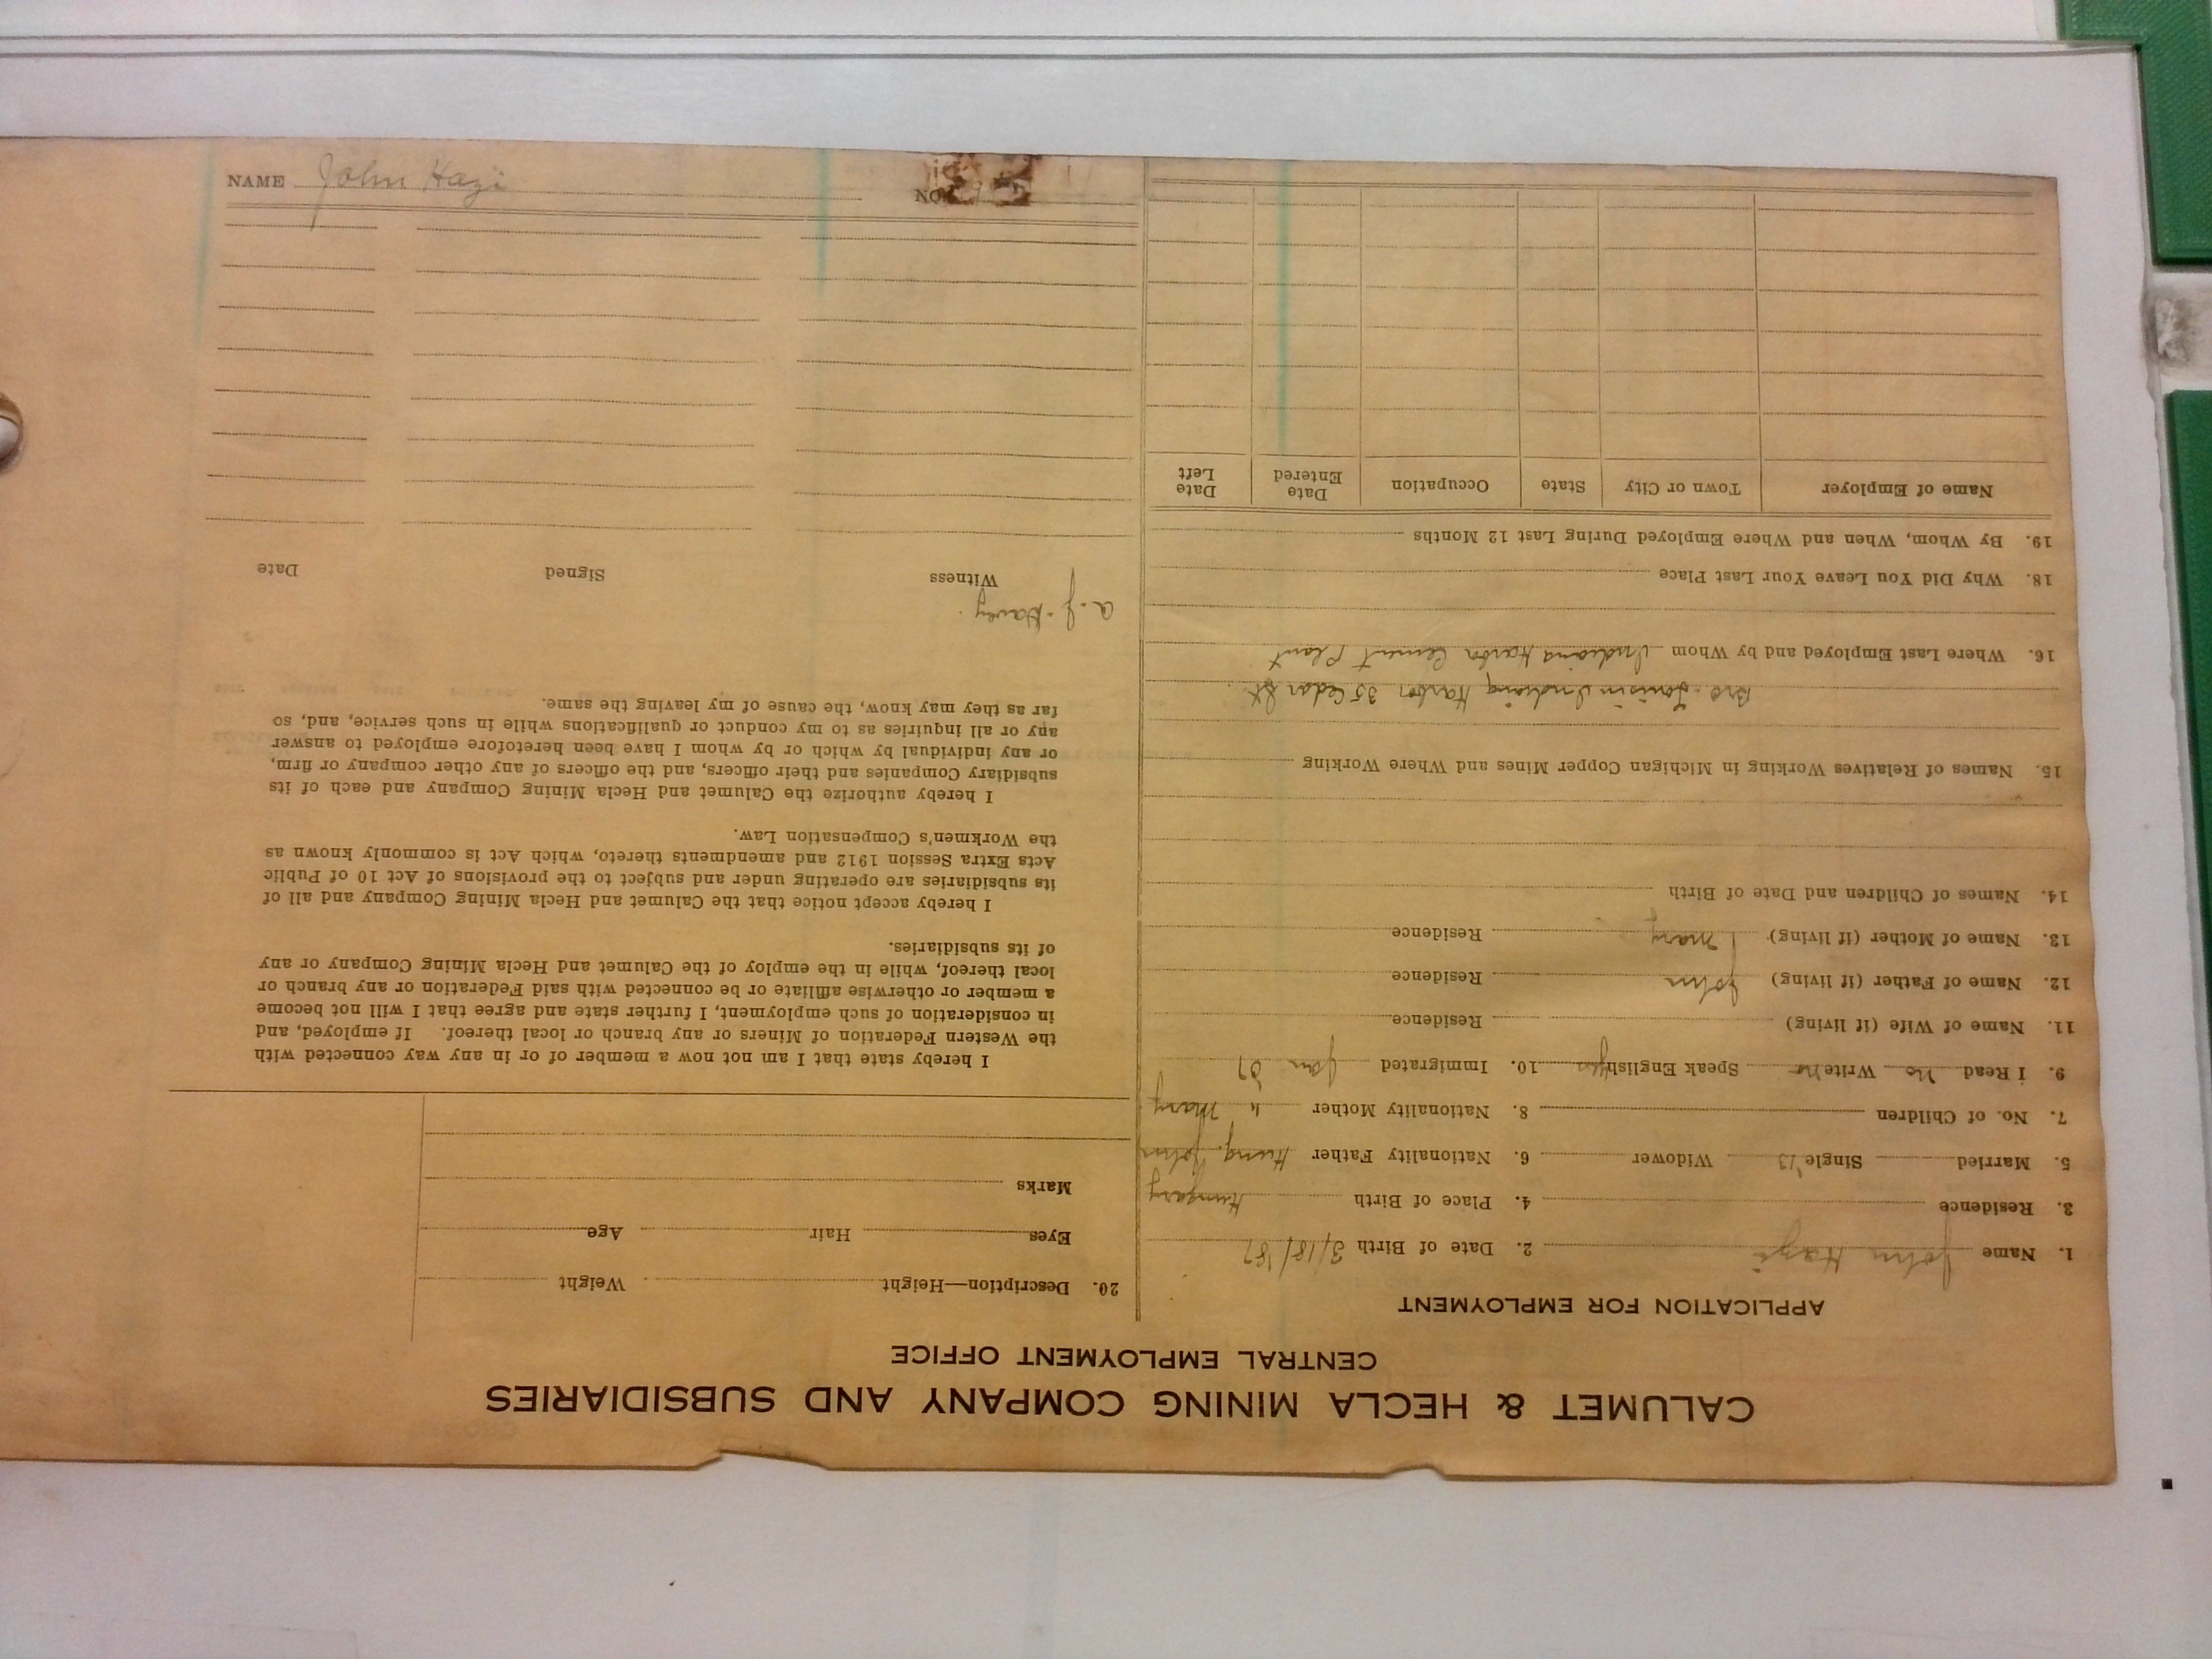 CALUMET & HECLA MINING COMPANY AND SUBSIDIARIES
CENTRAL EMPLOYMENT OFFICE
APPLICATION FOR EMPLOYMENT
1. Name John Hazi 2. Date of Birth 3/18/'87
3. Residence 4. Place of Birth Hungary
5. Married Single Widower 6. Nationality Father Hung. John
7. No. of Children 8. Nationality Mother " Mary
9. I Read No Write No Speak English yes 10. Immigrated Jan '07
11. Name of Wife (if living) Residence
12. Name of Father (if living) John Residence
13. Name of Mother (if living) Mary Residence
14. Names of Children and Date of Birth
15. Names of Relatives Working in Michigan Copper Mines and Where Working
Bro - Louis in Indiana Harbor 35 Cedar St.
16. Where Last Employed and by Whom Indiana Harbor Cement Plant
18. Why Did You Leave Your Last Place
19. By Whom, When and Where Employed During Last 12 Months
Name of Employer Town or City State Occupation Date Entered Date Left
20. Description—Height Weight
Eyes Hair Age
Marks
I hereby state that I am not now a member of or in any way connected with
the Western Federation of Miners or any branch or local thereof. If employed, and
in consideration of such employment, I further state and agree that I will not become
a member or otherwise affiliate or be connected with said Federation or any branch or
local thereof, while in the employ of the Calumet and Hecla Mining Company or any
of its subsidiaries.
I hereby accept notice that the Calumet and Hecla Mining Company and all of
its subsidiaries are operating under and subject to the provisions of Act 10 of Public
Acts Extra Session 1912 and amendments thereto, which Act is commonly known as
the Workmen's Compensation Law.
I hereby authorize the Calumet and Hecla Mining Company and each of its
subsidiary Companies and their officers, and the officers of any other company or firm,
or any individual by which or by whom I have been heretofore employed to answer
any or all inquiries as to my conduct or qualifications while in such service, and, so
far as they may know, the cause of my leaving the same.
a. J. Harvey.
Witness Signed Date
NAME John Hazi NO.